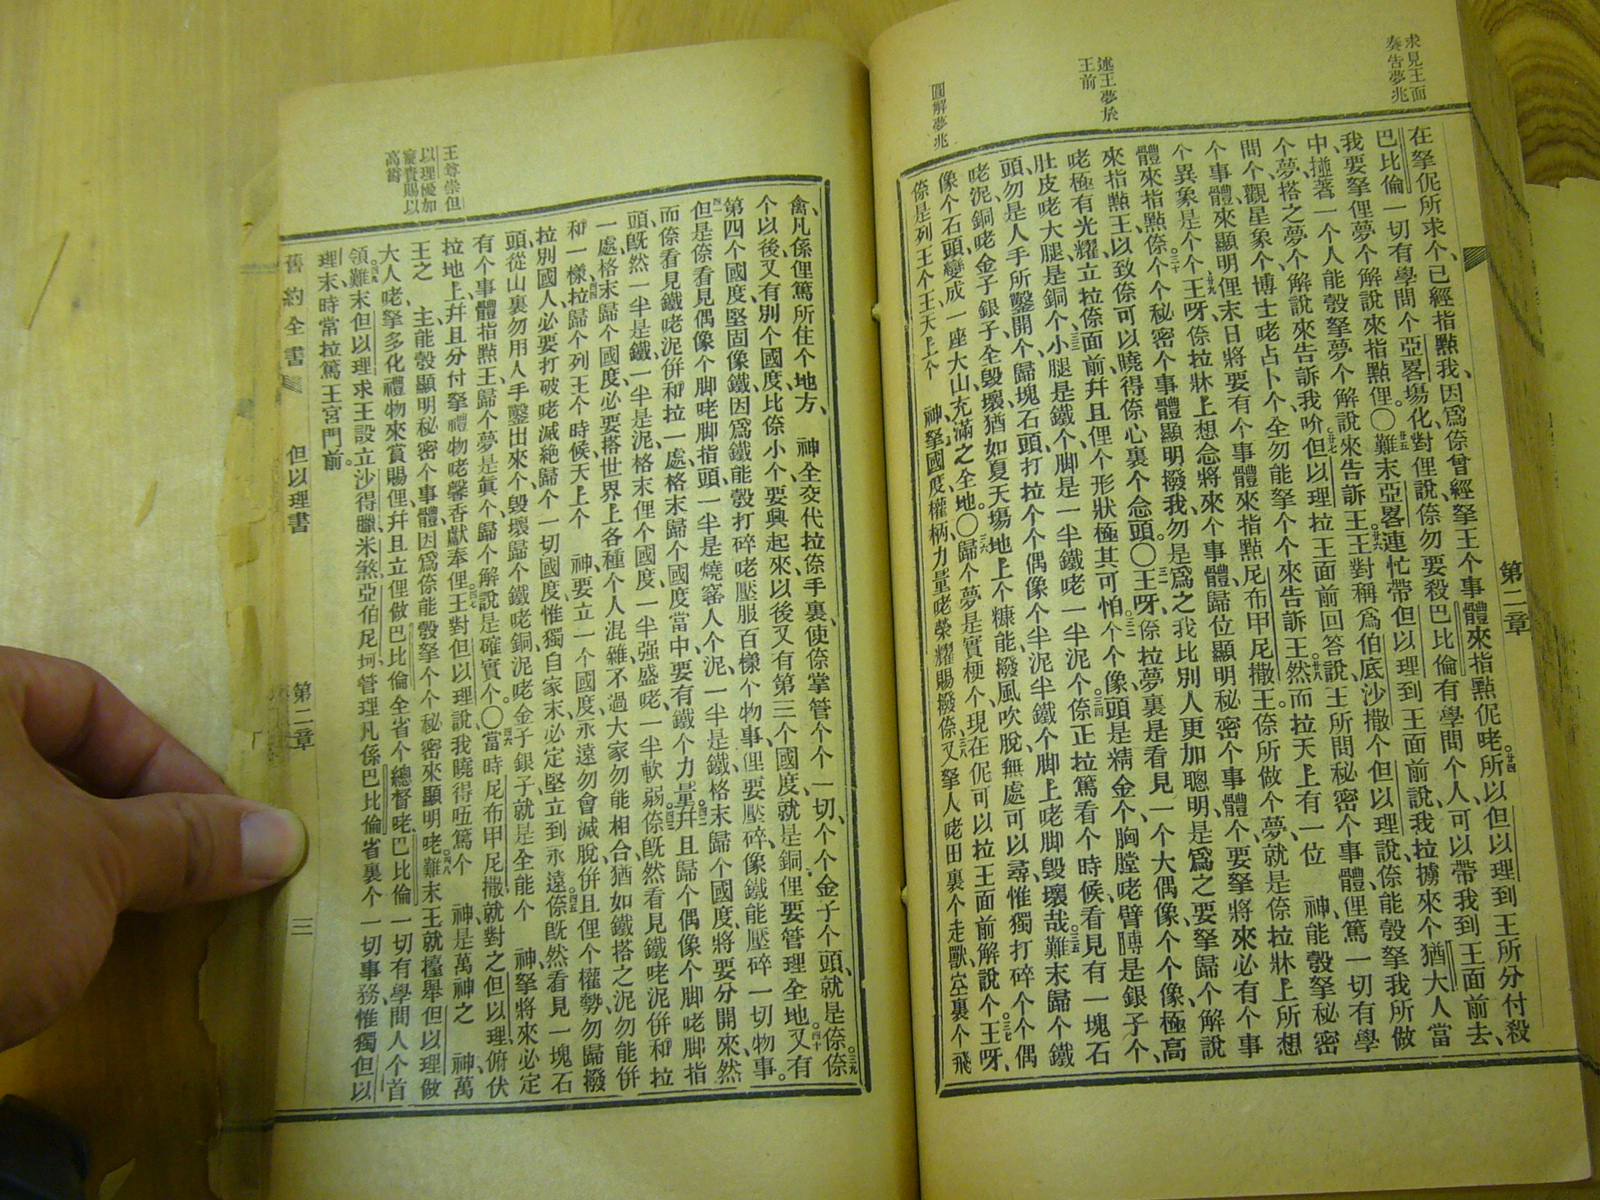 求見王面
奏吿夢兆
述王夢於
王前
圓解夢兆
第二章
在拏伲所求个、已經指點我、因爲倷曾經拏王个事體來指點伲咾。所以但以理到王所分付殺
巴比倫一切有學問个亞畧塲化、對俚說、倷勿要殺巴比倫有學問个人、可以帶我到王面前去、
我要拏俚夢个解說來指點俚。〇難末亞畧連忙帶但以理到王面前說、我拉擄來个猶大人當
中、撞著一个人能彀拏夢个解說來吿訴王。王對稱爲伯底沙撒个但以理說、倷能彀拏我所做
个夢、搭之夢个解說來吿訴我吤。但以理拉王面前回答說、王所問秘密个事體、俚篤一切有學
問个觀星象个博士咾占卜个、全勿能拏个个來吿訴王。然而拉天上有一位 神能彀拏秘密
个事體來顯明、俚末日將要有个事體來指點尼布甲尼撒王。倷所做个夢、就是倷拉牀上所想
个異象是个个。王呀、倷拉牀上想念將來个事體、歸位顯明秘密个事體个、要拏將來必有个事
體來指點倷。个个秘密个事體顯明撥我、勿是爲之我比別人更加聰明、是爲之要拏歸个解說
來指點王、以致倷可以曉得倷心裏个念頭。〇王呀、倷拉夢裏是看見一个大偶像、个个像極高
咾極有光耀、立拉倷面前、幷且俚个形狀極其可怕。个个像、頭是精金个、胸膛咾臂膊是銀子个、
肚皮咾大腿是銅个、小腿是鐵个、脚是一半鐵咾一半泥个、倷正拉篤看个時候、看見有一塊石
頭、勿是人手所鑿開个、歸塊石頭打拉个个偶像个半泥半鐵个脚上咾、脚毀壞哉、難末歸个鐵
咾泥、銅咾金子銀子、全毀壞、猶如夏天塲地上个糠、能撥風吹脫、無處可以尋、惟獨打碎个个偶
像个石頭、變成一座大山、充滿之全地。〇歸个夢是實梗个、現在伲可以拉王面前解說个、王呀、
倷是列王个王、天上个 神拏國度權柄力量咾榮耀賜撥倷、又拏人咾田裏个走獸、空裏个飛
禽、凡係俚篤所住个地方、 神全交代拉倷手裏、使倷掌管个个一切、个个金子个頭、就是倷。倷
个以後又有別个國度、比倷小个、要興起來、以後又有第三个國度、就是銅、俚要管理全地。又有
第四个國度、堅固像鐵、因爲鐵能彀打碎咾壓服百樣个物事、俚要壓碎像鐵能壓碎一切物事。
但是倷看見偶像个脚咾脚指頭、一半是燒窰人个泥、一半是鐵、格末歸个國度、將要分開來、然
而倷看見鐵咾泥倂和拉一處、格末歸个國度當中、要有鐵个力量、幷且歸个偶像个脚咾脚指
頭、旣然一半是鐵、一半是泥、格末俚个國度、一半强盛咾、一半軟弱、倷旣然看見鐵咾泥倂和拉
一處、格末歸个國度、必要搭世界上各種个人混雜、不過大家勿能相合、猶如鐵搭之泥勿能倂
和一樣。拉歸个列王个時候、天上个 神、要立一个國度、永遠勿會滅脫、倂且俚个權勢、勿歸撥
拉別國人、必要打破咾滅絕歸个一切國度、惟獨自家末、必定堅立到永遠。倷旣然看見一塊石
頭、從山裏勿用人手鑿出來个、毀壞歸个鐵咾銅泥咾金子銀子、就是全能个 神、拏將來必定
有个事體指點王、歸个夢是眞个、歸个解說是確實个。〇當時尼布甲尼撒、就對之但以理俯伏
拉地上、幷且分付拏禮物咾馨香獻奉俚。王對但以理說、我曉得𠲎篤个 神、是萬神之 神、萬
王之 主、能彀顯明秘密个事體、因爲倷能彀拏个个秘密來顯明咾。難末王就擡舉但以理做
大人咾、拏多化禮物來賞賜俚、幷且立俚做巴比倫全省个總督咾、巴比倫一切有學問人个首
領、難末但以理求王設立沙得臘、米煞、亞伯尼坷、管理凡係巴比倫省裏个一切事務、惟獨但以
理末、時當拉篤王宮門前。
王尊崇但
以理優加
寵賚賜以
高爵
舊約全書 但以理書 第二章 三